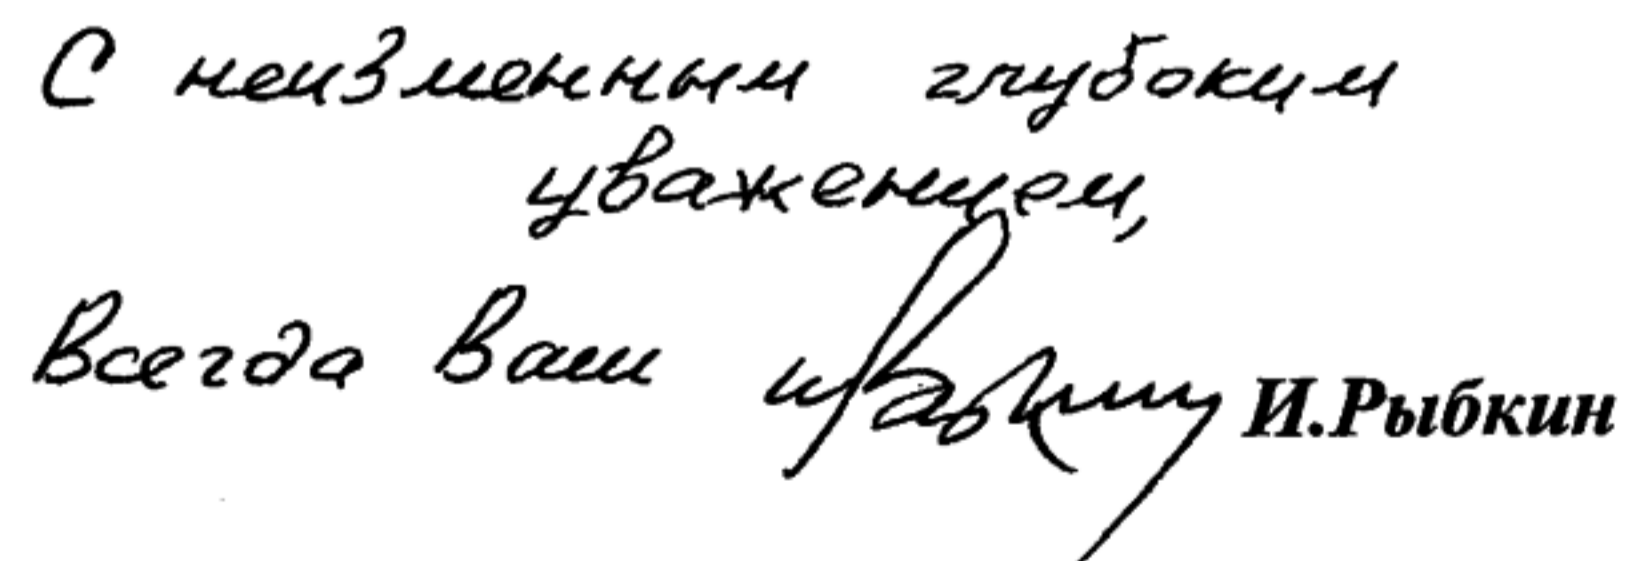 С неизменным глубоким
уважением,
Всегда Ваш И.Рыбкин